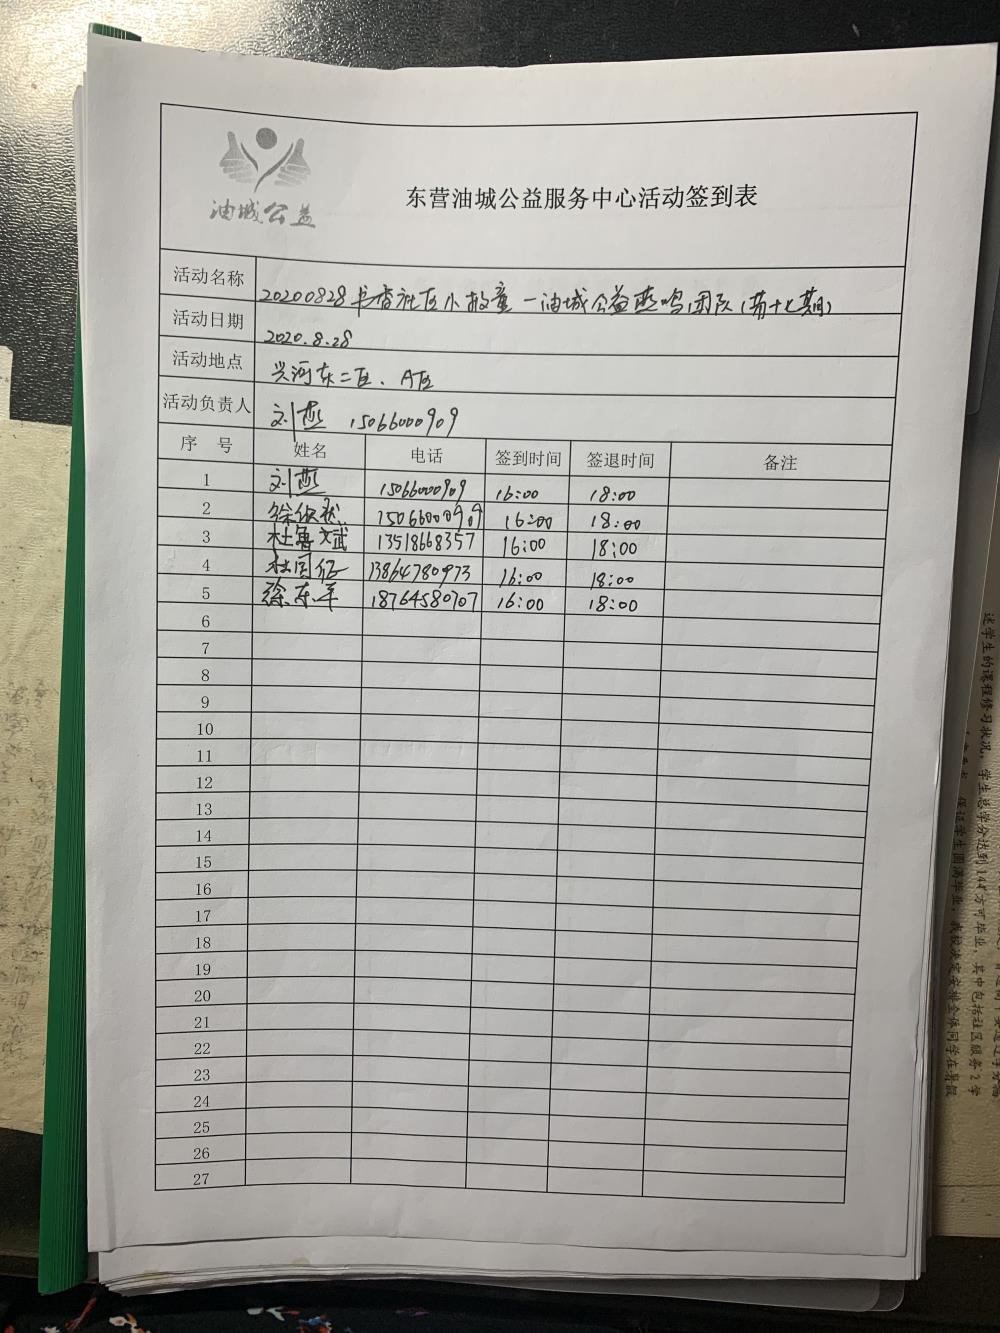 油城公益
东营油城公益服务中心活动签到表
活动名称 20200828书香社区小牧童一油城公益燕鸣团队(第十七期)
活动日期 2020.8.28
活动地点 兴河东二区、A区
活动负责人 刘燕 15066000909
序 号 姓名 电话 签到时间 签退时间 备注
1 刘燕 15066000909 16:00 18:00
2 徐 15066000909 16:00 18:00
3 杜鲁斌 13518668357 16:00 18:00
4 杜同征 13864780973 16:00 18:00
5 徐东军 18764580707 16:00 18:00
6
7
8
9
10
11
12
13
14
15
16
17
18
19
20
21
22
23
24
25
26
27
述学生的课程修习状况,学生总学分达到144方可毕业,其中包括社区服务2学
保证学生圆满毕业,我校决定安排全体同学在暑假